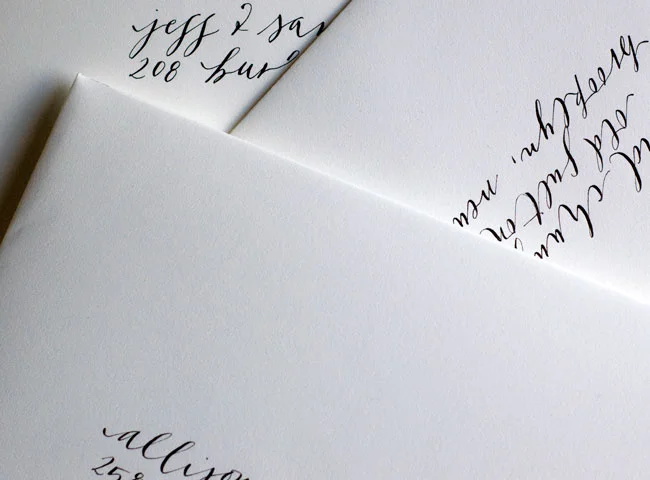 jeff & sar
208 hur
chun
old fulton
brooklyn, new
allison
258